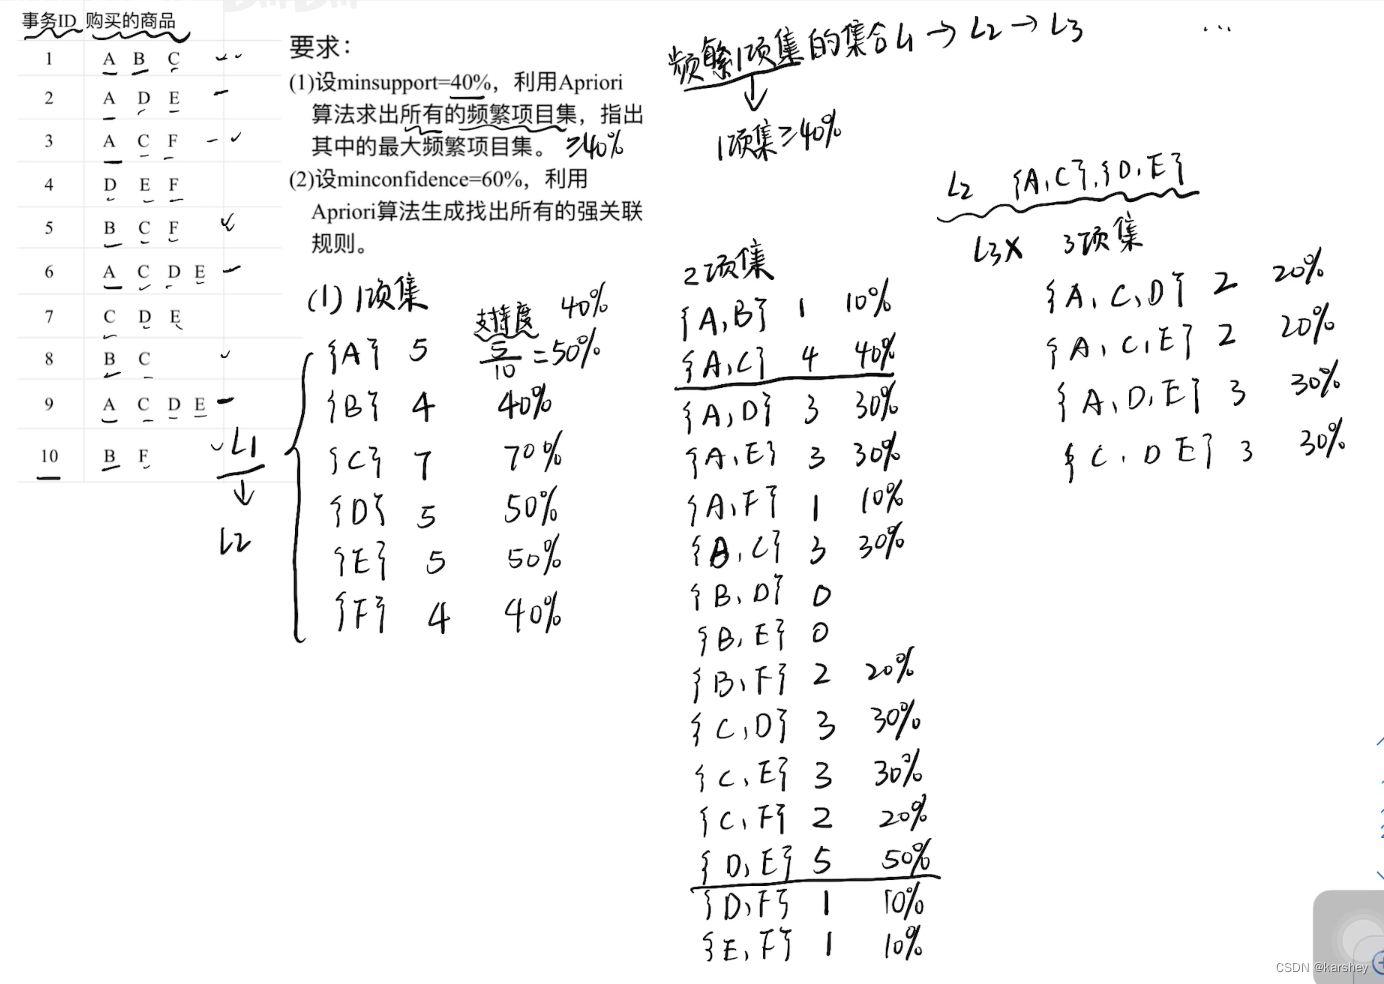 事务ID 购买的商品
1 A B C
2 A D E
3 A C F
4 D E F
5 B C F
6 A C D E
7 C D E
8 B C
9 A C D E
10 B F
L1
↓
L2
要求：
(1)设minsupport=40%，利用Apriori
算法求出所有的频繁项目集，指出
其中的最大频繁项目集。 ≥40%
(2)设minconfidence=60%，利用
Apriori算法生成找出所有的强关联
规则。
(1) 1项集
支持度 40%
{A} 5 5/10 =50%
{B} 4 40%
{C} 7 70%
{D} 5 50%
{E} 5 50%
{F} 4 40%
频繁1项集的集合L1 → L2 → L3 ...
↓
1项集≥40%
2项集
{A,B} 1 10%
{A,C} 4 40%
{A,D} 3 30%
{A,E} 3 30%
{A,F} 1 10%
{B,C} 3 30%
{B,D} 0
{B,E} 0
{B,F} 2 20%
{C,D} 3 30%
{C,E} 3 30%
{C,F} 2 20%
{D,E} 5 50%
{D,F} 1 10%
{E,F} 1 10%
L2 {A,C},{D,E}
L3 × 3项集
{A,C,D} 2 20%
{A,C,E} 2 20%
{A,D,E} 3 30%
{C,D E} 3 30%
CSDN @karshey